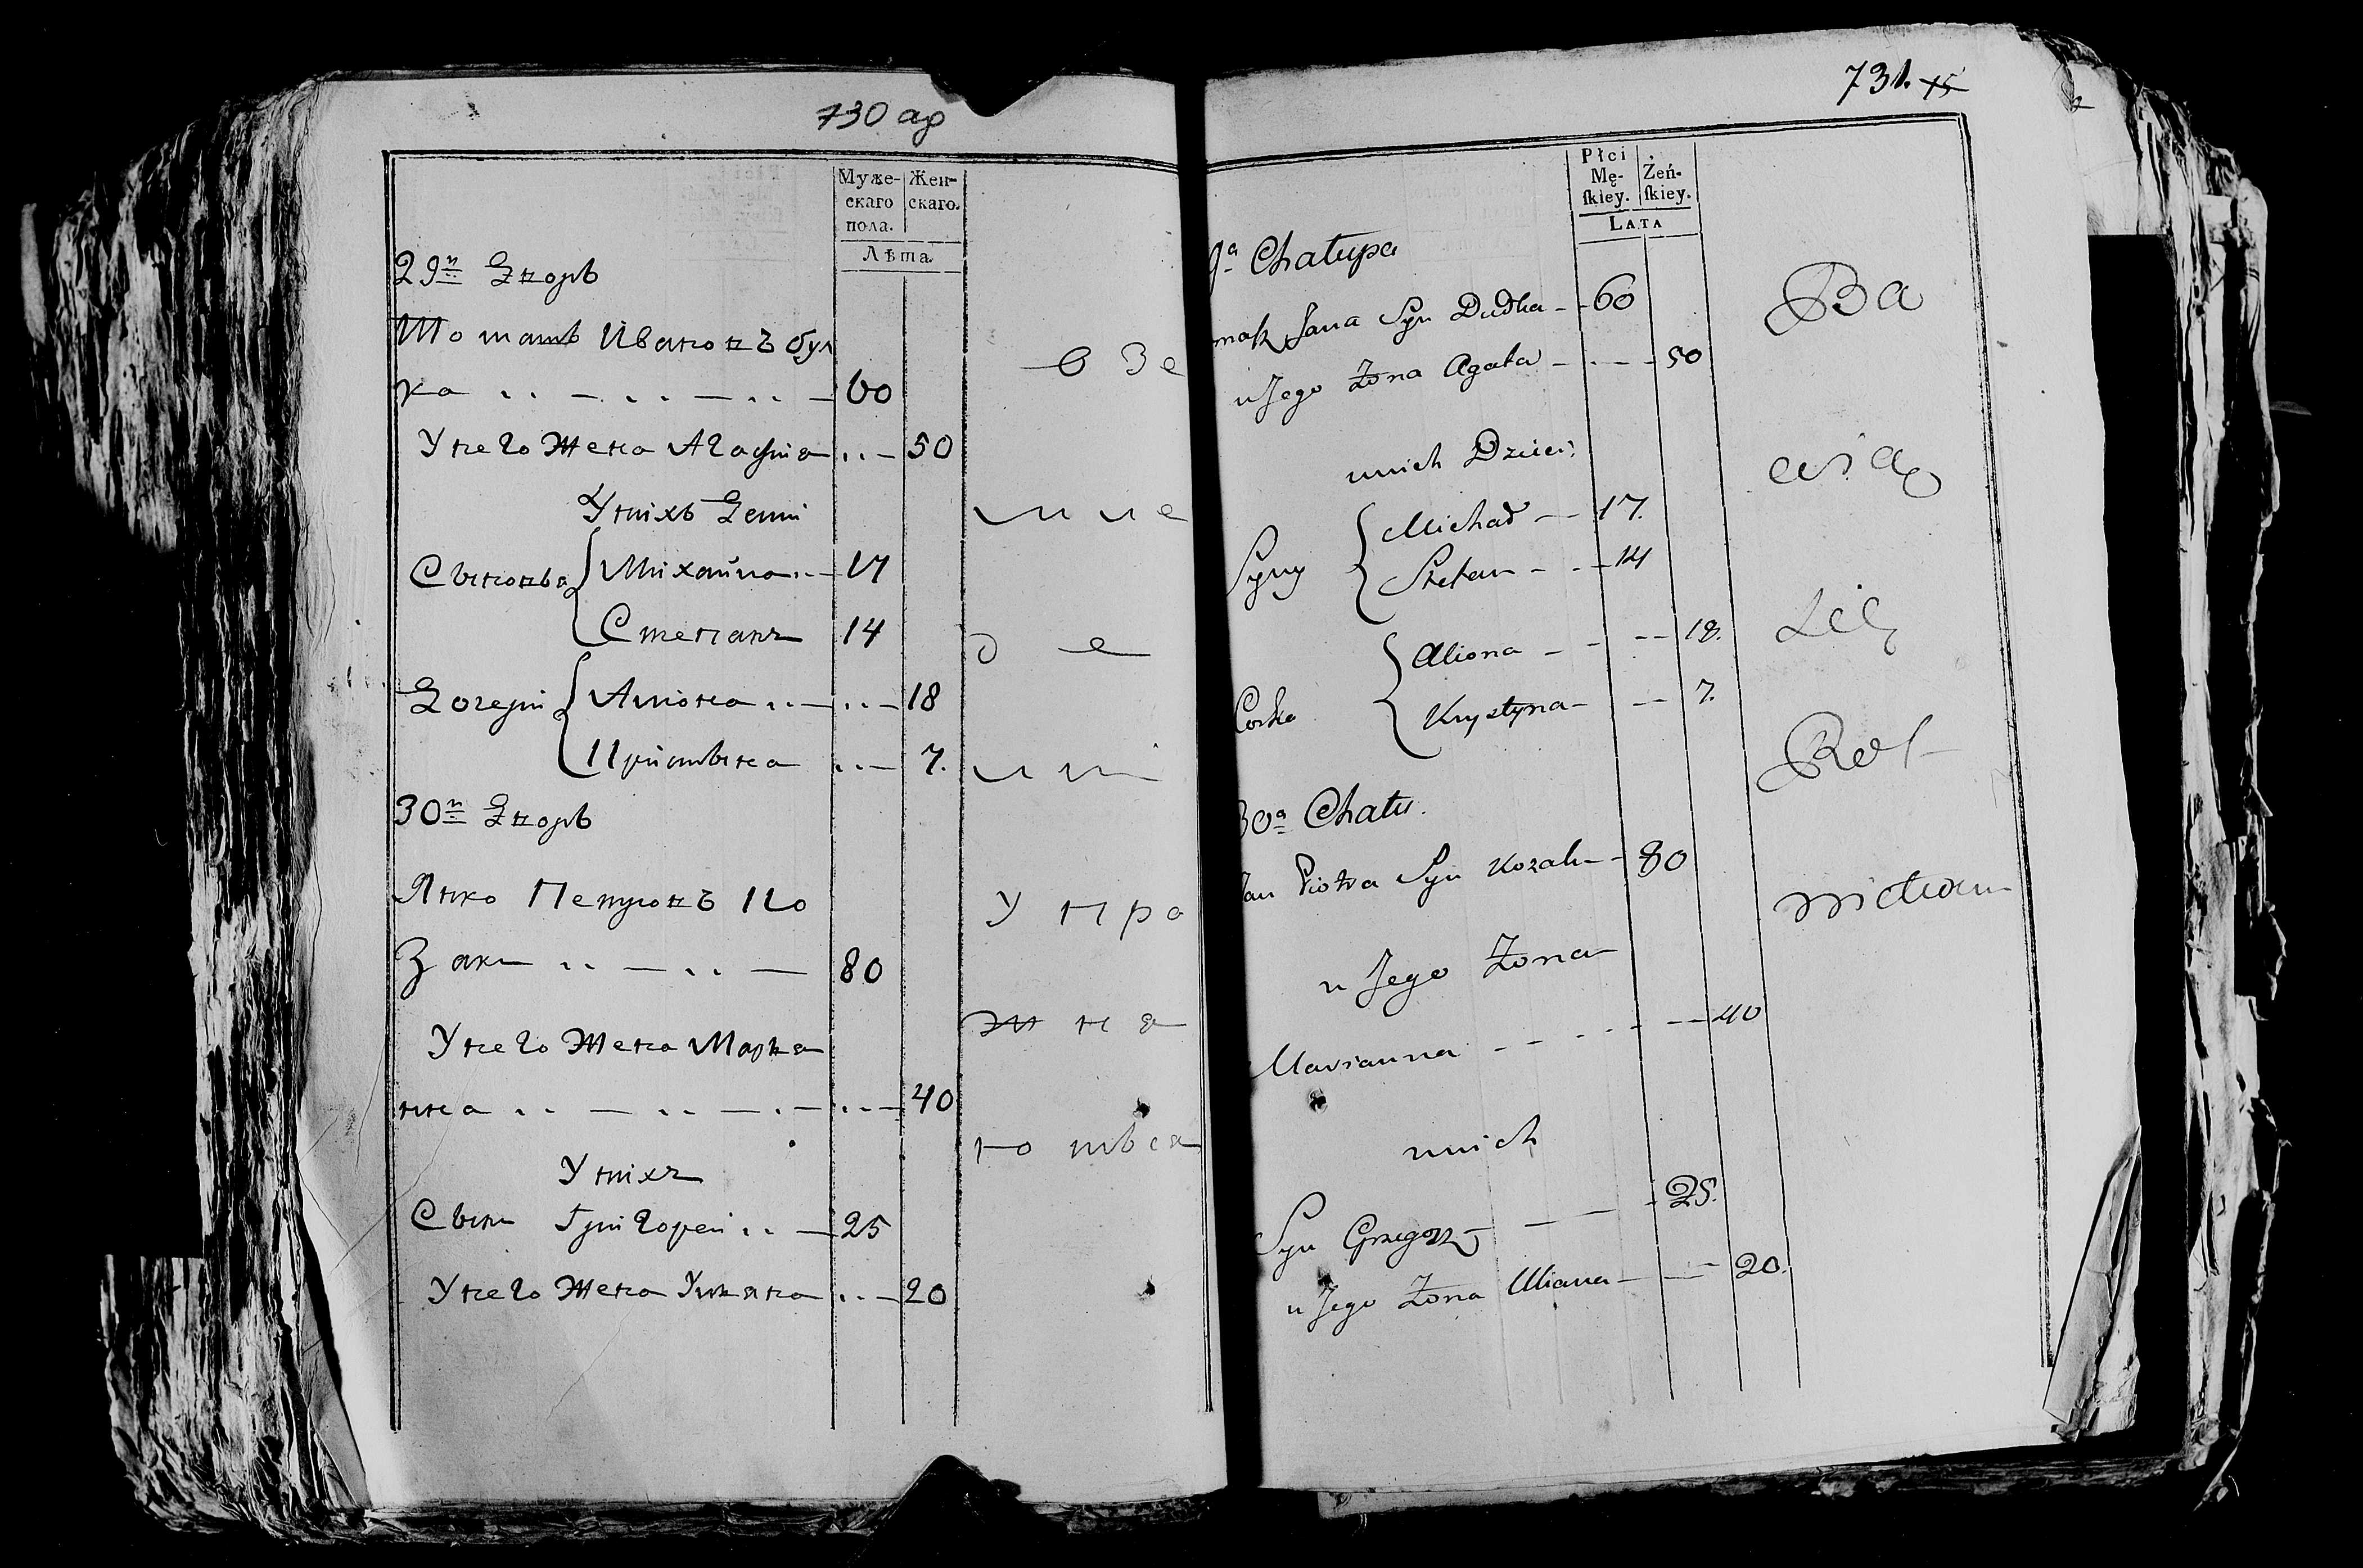 730 ар
Муже-
скаго
пола.
Жен-
скаго.
Лѣта
29й Дворъ
Томашъ Ивановъ Дуд
ка 60
У него Жена Агафия 50
У нихъ Дети
Сыновья Михайла 17
Степанъ 14
Дочери Алiона 18
Христына 7.
30й Дворъ
Янко Петровъ Ко
закъ 80
У него Жена Марья
нна 40
У нихъ
Сынъ Григорей 25
У него Жена Ульяна 20
731. 15
Płci
Mę-
ſkiey.
Żeń-
ſkiey.
LATA
9a Chałupa
mak Jana Syn Dudka 60
u Jego Żona Agata 50
u nich Dzieci
Syny Michał 17.
Stefan 14
Corka Aliona 18.
Krystyna 7.
30a Chału.
Jan Piotra Syn Kozak 80
u Jego Żona
Marianna 40
u nich
Syn Grzegorz 25.
u Jego Żona Uliana 20.